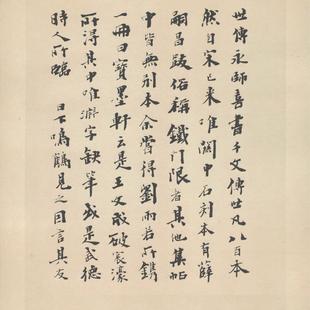 世傳永師喜書千文傳世凡八百本
然自宋已來唯關中石刻本有薛
嗣昌跋俗稱鐵門限者其他集帖
中皆無別本余嘗得劉雨若所鐫
一冊曰寶墨軒云是王文破宸濠
所得其中唯淵字缺筆或是武德
時人所臨 日下鳴鶴見之因言其友